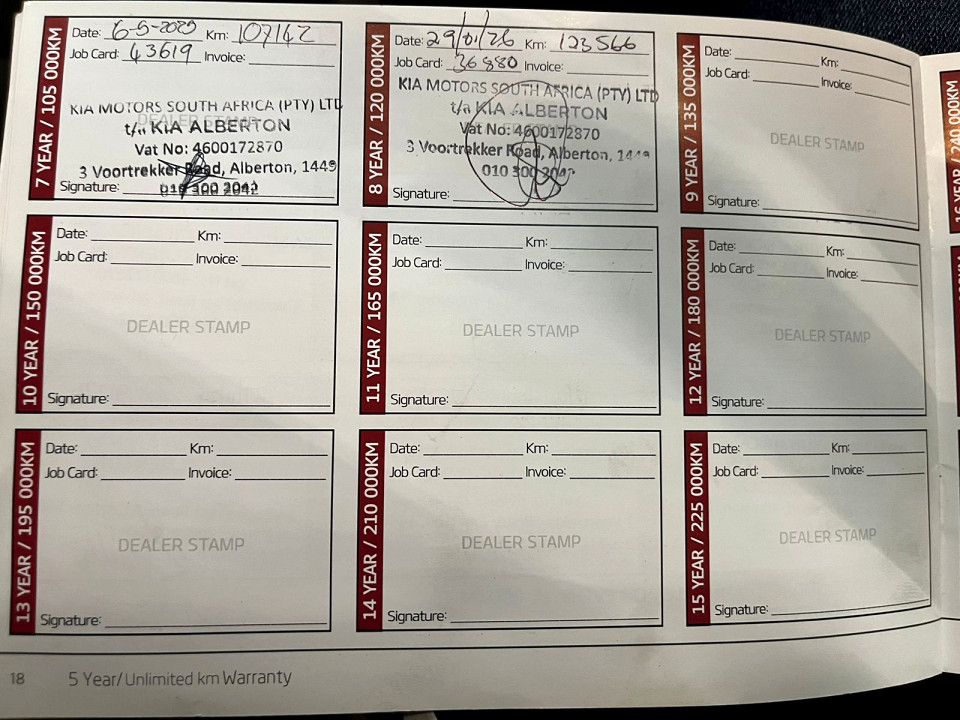 7 YEAR / 105 000KM
Date: 6-5-2025 Km: 107142
Job Card: 43619 Invoice:
DEALER STAMP
KIA MOTORS SOUTH AFRICA (PTY) LTD
t/a KIA ALBERTON
Vat No: 4600172870
3 Voortrekker Road, Alberton, 1449
010 300 2042
Signature:
8 YEAR / 120 000KM
Date: 29/01/26 Km: 123566
Job Card: 36880 Invoice:
KIA MOTORS SOUTH AFRICA (PTY) LTD
t/a KIA ALBERTON
Vat No: 4600172870
3 Voortrekker Road, Alberton, 1449
010 300 2042
Signature:
9 YEAR / 135 000KM
Date: Km:
Job Card: Invoice:
DEALER STAMP
Signature:
10 YEAR / 150 000KM
Date: Km:
Job Card: Invoice:
DEALER STAMP
Signature:
11 YEAR / 165 000KM
Date: Km:
Job Card: Invoice:
DEALER STAMP
Signature:
12 YEAR / 180 000KM
Date: Km:
Job Card: Invoice:
DEALER STAMP
Signature:
13 YEAR / 195 000KM
Date: Km:
Job Card: Invoice:
DEALER STAMP
Signature:
14 YEAR / 210 000KM
Date: Km:
Job Card: Invoice:
DEALER STAMP
Signature:
15 YEAR / 225 000KM
Date: Km:
Job Card: Invoice:
DEALER STAMP
Signature:
16 YEAR / 240 000KM
18 5 Year/ Unlimited km Warranty